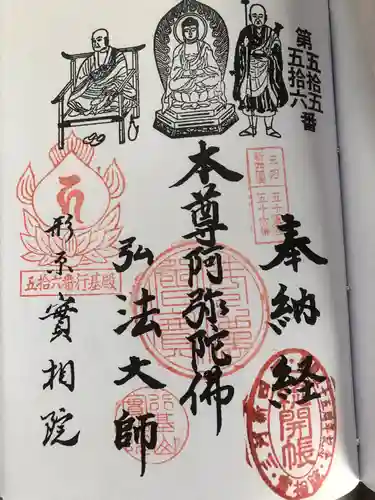 第五拾五
五拾六番
奉納経
本尊阿弥陀佛
弘法大師
形原
實相院
五拾六番行基殿
開帳